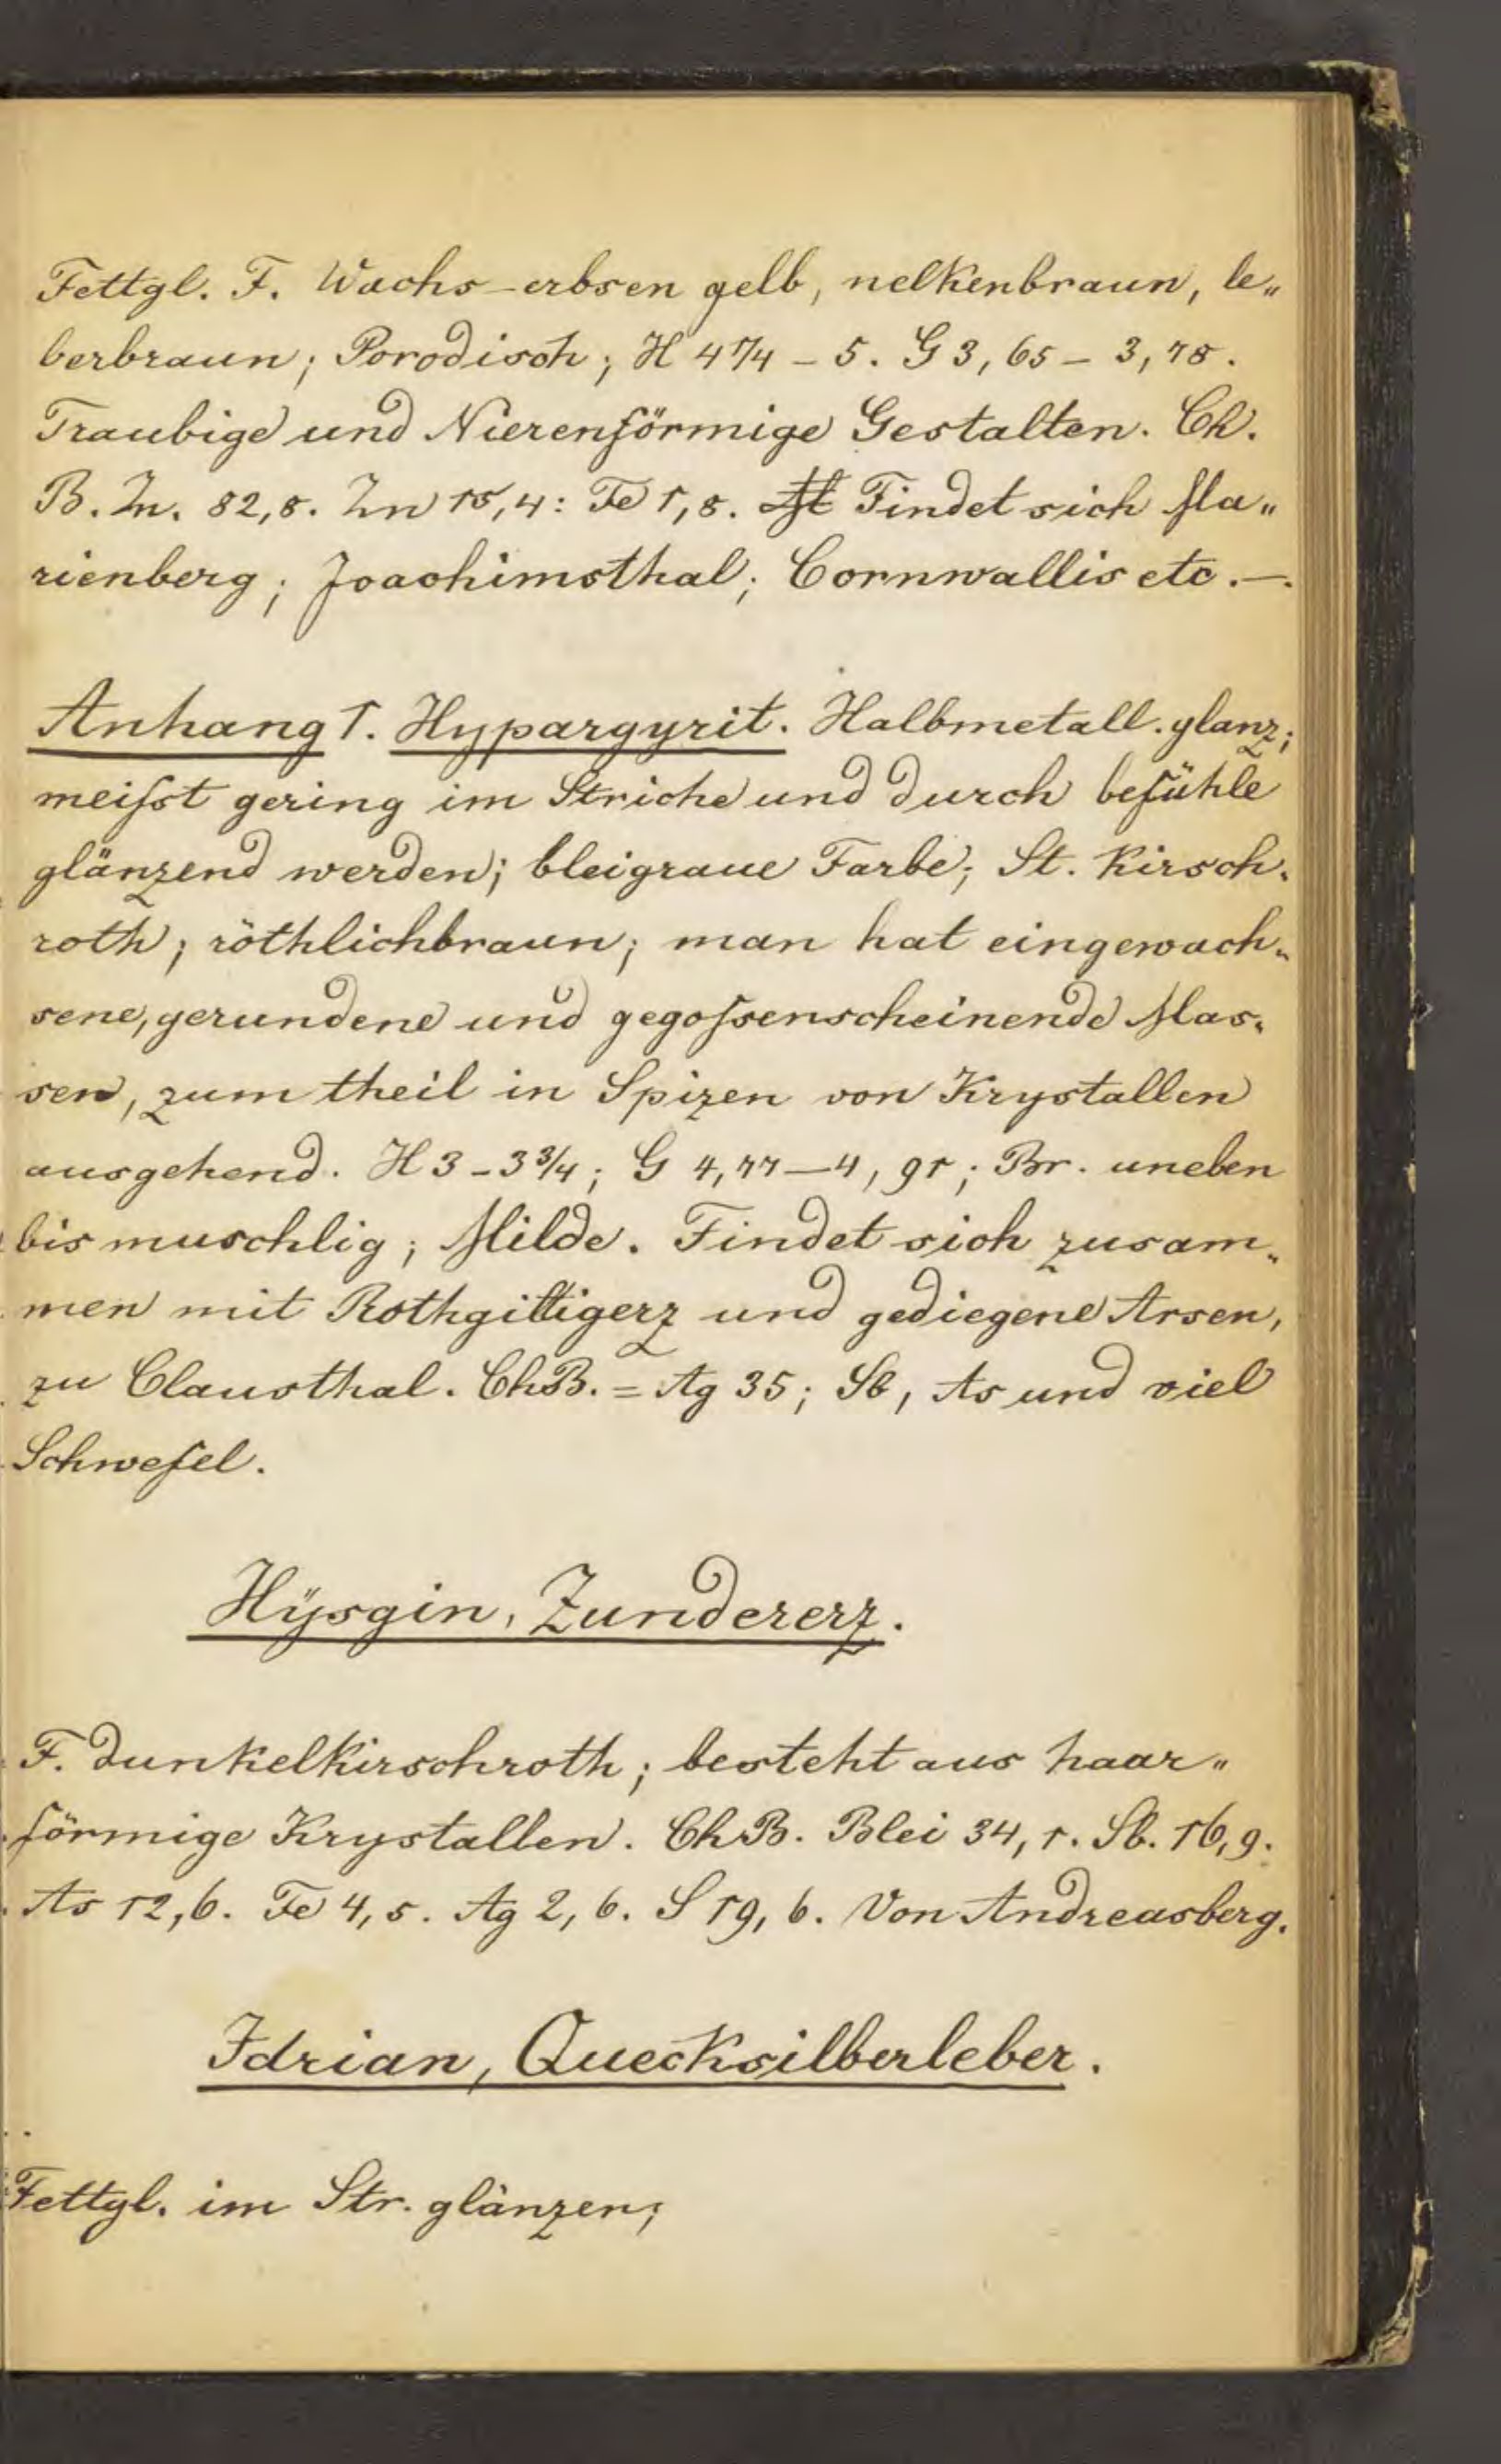 Fettgl. F. Wachs-erbsen gelb, nelkenbraun, le„
berbraun; Porodisch; H 4¼ – 5. G 3,65 – 3,78.
Traubige und Nierenförmige Gestalten. Ch.
B. Zn. 82,8. Zn 15,4: Fe 1,8. Findet sich Ma„
rienberg; Joachimsthal; Cornwallis etc. –.
Anhang 1. Hypargyrit. Halbmetall. glanz;
meißt gering im Striche und durch befühle
glänzend werden; bleigraue Farbe; St. Kirsch„
roth; röthlichbraun; man hat eingewach„
sene, gerundene und gegoßenscheinende Mas„
sen, zum theil in Spizen von Krystallen
ausgehend. H 3 – 3¾; G 4,77 – 4,91; Br. uneben
bis muschlig; Milde. Findet sich zusam„
men mit Rothgiltigerz und gediegene Arsen,
zu Clausthal. ChB. = Ag 35; Sb, As und viel
Schwefel.
Hÿsgin, Zundererz.
F. dunkelkirschroth; besteht aus haar„
förmige Krystallen. ChB. Blei 34,1. Sb. 16,9.
As 12,6. Fe 4,5. Ag 2,6. S 19,6. Von Andreasberg.
Idrian, Quecksilberleber.
Fettgl. im Str. glänzen;